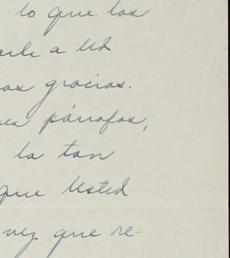 lo que los
a Ud
gracias.
párrafos,
la tan
que Usted
vez que re-